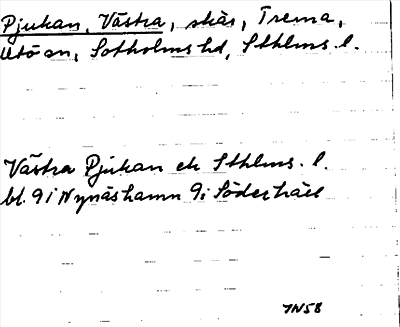 Pjukan, Västra, skär, Trema,
Utö sn, Sotholms hd, Sthlms. l.
Västra Pjukan ek Sthlms. l.
bl. 9 i Nynäshamn 9 i Söderhäll